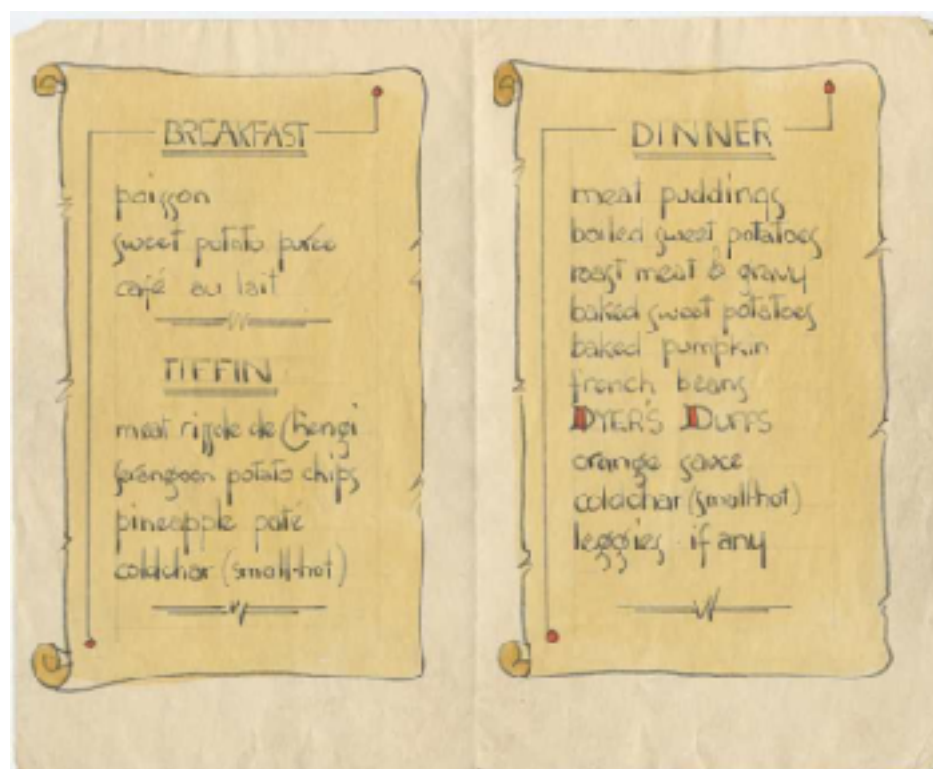 BREAKFAST
poisson
sweet potato purée
café au lait
TIFFIN
meat rissole de Changi
serangoon potato chips
pineapple paté
coldchar (small-hot)
DINNER
meat puddings
boiled sweet potatoes
roast meat & gravy
baked sweet potatoes
baked pumpkin
french beans
DYER'S DUFFS
orange sauce
coldchar (small-hot)
leggies if any